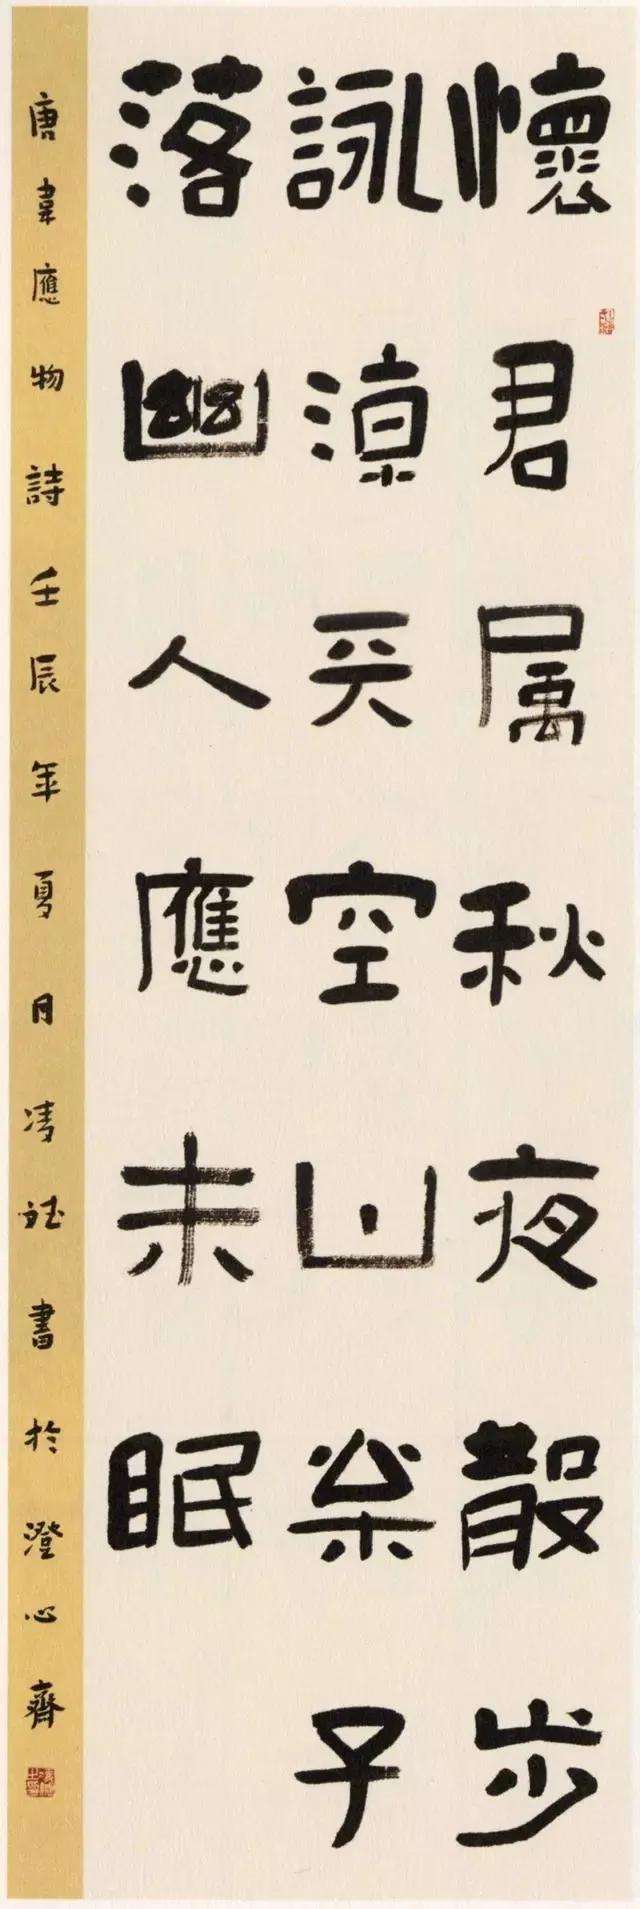 懷君属秋夜散步
詠涼天空山枀子
落幽人應未眠
唐韋應物詩壬辰年夏月書於澄心齋